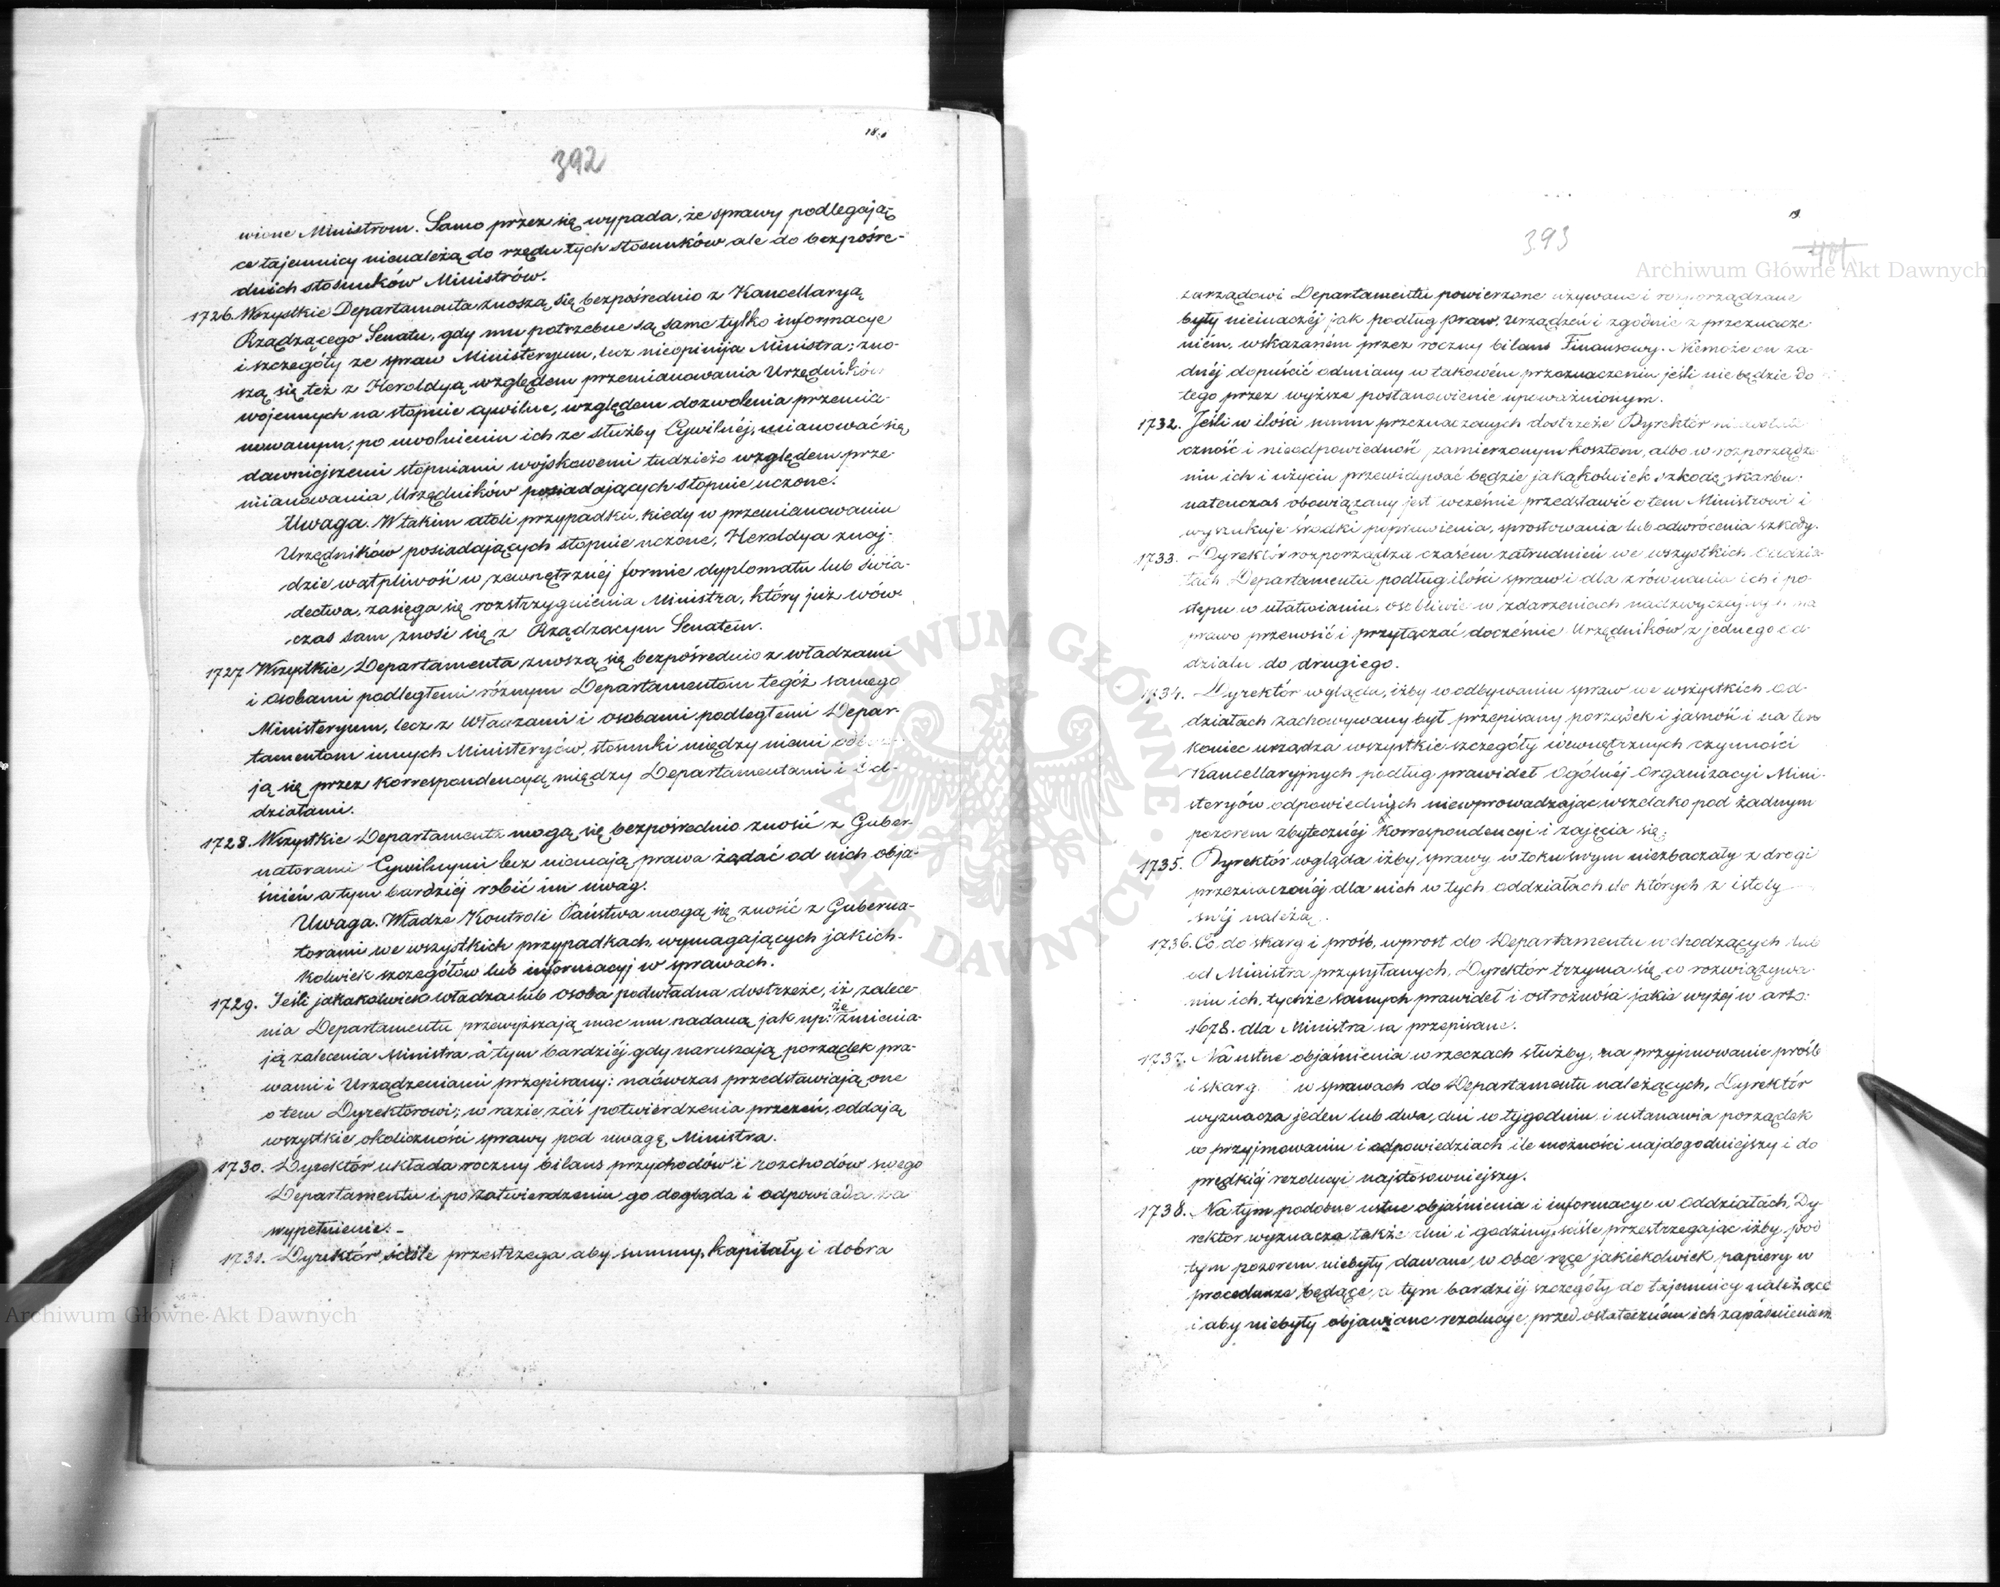 18.
392
wione Ministrom. Samo przez się wypada, że sprawy podlegają-
ce tajemnicy nienależą do rzędu tych stosunków ale do bezpośre-
dnich stosunków Ministrów.
1726. Wszystkie Departamenta znoszą się bezpośrednio z Kancellaryą
Rządzącego Senatu, gdy mu potrzebne są same tylko informacye
i szczegóły ze spraw Ministeryum, lecz nieopinija Ministra; zno-
szą się też z Heroldyą względem przemianowania Urzędników
wojennych na stopnie cywilne, względem dozwolenia przemia-
nowanym, po uwolnieniu ich ze służby Cywilnéj, mianować się
dawniejszemi stopniami wojskowemi tudzież względem prze-
mianowania Urzędników posiadających stopnie uczone.
Uwaga. W takim atoli przypadku, kiedy w przemianowaniu
Urzędników posiadających stopnie uczone, Heroldya znaj-
dzie wątpliwość w zewnętrznéj formie dyplomatu lub świa-
dectwa, zasięga się rozstrzygnienia Ministra, który już wów-
czas sam znosi się z Rządzacym Senatem.
1727 Wszystkie Departamenta znoszą się bezpośrednio z władzami
i osobami podległemi różnym Departamentom tegóż samego
Ministeryum, lecz z Władzami i osobami podległemi Depar-
tamentom innych Ministeryów, stosunki między niemi odbywa-
ją się przez korrespondencyą między Departamentami i Od-
działami.
1728. Wszystkie Departamenta mogą się bezpośrednio znosić z Guber-
natorami Cywilnymi lecz niemają prawa żądać od nich obja-
śnień a tym bardziéj robić im uwag.
Uwaga. Władze Kontroli Państwa mogą się znosić z Guberna-
torami we wszystkich przypadkach wymagających jakich-
kolwiek szczegółów lub informacyj w sprawach.
1729. Jeśli jakakolwiek władza lub osoba podwładna dostrzeże, iż zalece-
nia Departamentu przewyższają moc mu nadaną jak np: że zmienia-
ją zalecenia Ministra a tym bardziéj gdy naruszają porządek pra-
wami i Urządzeniami przepisany: naówczas przedstawiają one
o tem Dyrektorowi; w razie zaś potwierdzenia przezeń, oddają
wszystkie okoliczności sprawy pod uwagę Ministra.
1730. Dyrektór układa roczny bilans przychodów i rozchodów swego
Departamentu i po zatwierdzeniu go dogląda i odpowiada za
wypełnienie. -
1731. Dyrektór ściśle przestrzega aby summy, kapitały i dobra
19.
393
401
zarządowi Departamentu powierzone używane i rozporządzane
były nieinaczéj jak podług praw, urządzeń i zgodnie z przeznacze-
niem, wskazanem przez roczny bilans Finansowy. Niemoże on ża-
dnéj dopuścić odmiany w takowém przeznaczeniu jeśli nie będzie do
tego przez wyższe postanowienie upoważnionym.
1732. Jeśli w ilości summ przeznaczonych dostrzeże Dyrektór niedostate-
czność i nieodpowiedność, zamierzonym kosztom, albo w rozporządze-
niu ich i użyciu przewidywać będzie jakąkolwiek szkodę skarbu:
natenczas obowiązany jest wcześnie przedstawić o tem Ministrowi i
wyszukuje środki poprawienia, sprostowania lub odwrócenia szkody.
1733. Dyrektór rozporządza czasém zatrudnień we wszystkich Oddzia-
łach Departamentu podług ilości spraw i dla zrównania ich i po-
stępu w ułatwianiu, osobliwie w zdarzeniach nadzwyczajnych ma
prawo przenosić i przyłączać docześnie Urzędników z jednego od-
działu do drugiego.
1734. Dyrektór wgląda, iżby w odbywaniu spraw we wszystkich od-
działach zachowywany był przepisany porządek i jasność i na ten
koniec urządza wszystkie szczegóły wewnętrznych czynności
Kancellaryjnych podług prawideł Ogólnéj Organizacyi Mini-
steryów odpowiednich niewprowadzając wszelako pod żadnym
pozorem zbytecznéj korrespondencyi i zajęcia się;
1735. Dyrektór wgląda iżby sprawy w toku swym niezbaczały z drogi
przeznaczonéj dla nich w tych oddziałach do których z istoty
swéj należą.
1736. Co do skarg i próśb, wprost do Departamentu wchodzących lub
od Ministra przysyłanych, Dyrektór trzyma się co rozwiązywa-
niu ich, tychże samych prawideł i ostrożności jakie wyżéj w arto:
1678. dla Ministra są przepisane.
1737. Na ustne objaśnienia w rzeczach służby, na przyjmowanie próśb
i skarg w sprawach do Departamentu należących, Dyrektór
wyznacza jeden lub dwa, dni w tygodniu i ustanawia porządek
w przyjmowaniu i odpowiedziach ile możności najdogodniejszy i do
prędkiéj rezolucyi najstosowniejszy.
1738. Na tym podobne ustne objaśnienia i informacye w Oddziałach, Dy-
rektor wyznacza także dni i godziny, ściśle przestrzegając iżby pod
tym pozorem niebyły dawane, w obce ręce jakiekolwiek papiery w
procedurze będące, a tym bardziéj szczegóły do tajemnicy należące
i aby niebyły objawiane rezolucye, przed ostateczném ich zapadnieniem
Archiwum Główne Akt Dawnych
Archiwum Główne Akt Dawnych
ARCHIWUM GŁÓWNE AKT DAWNYCH